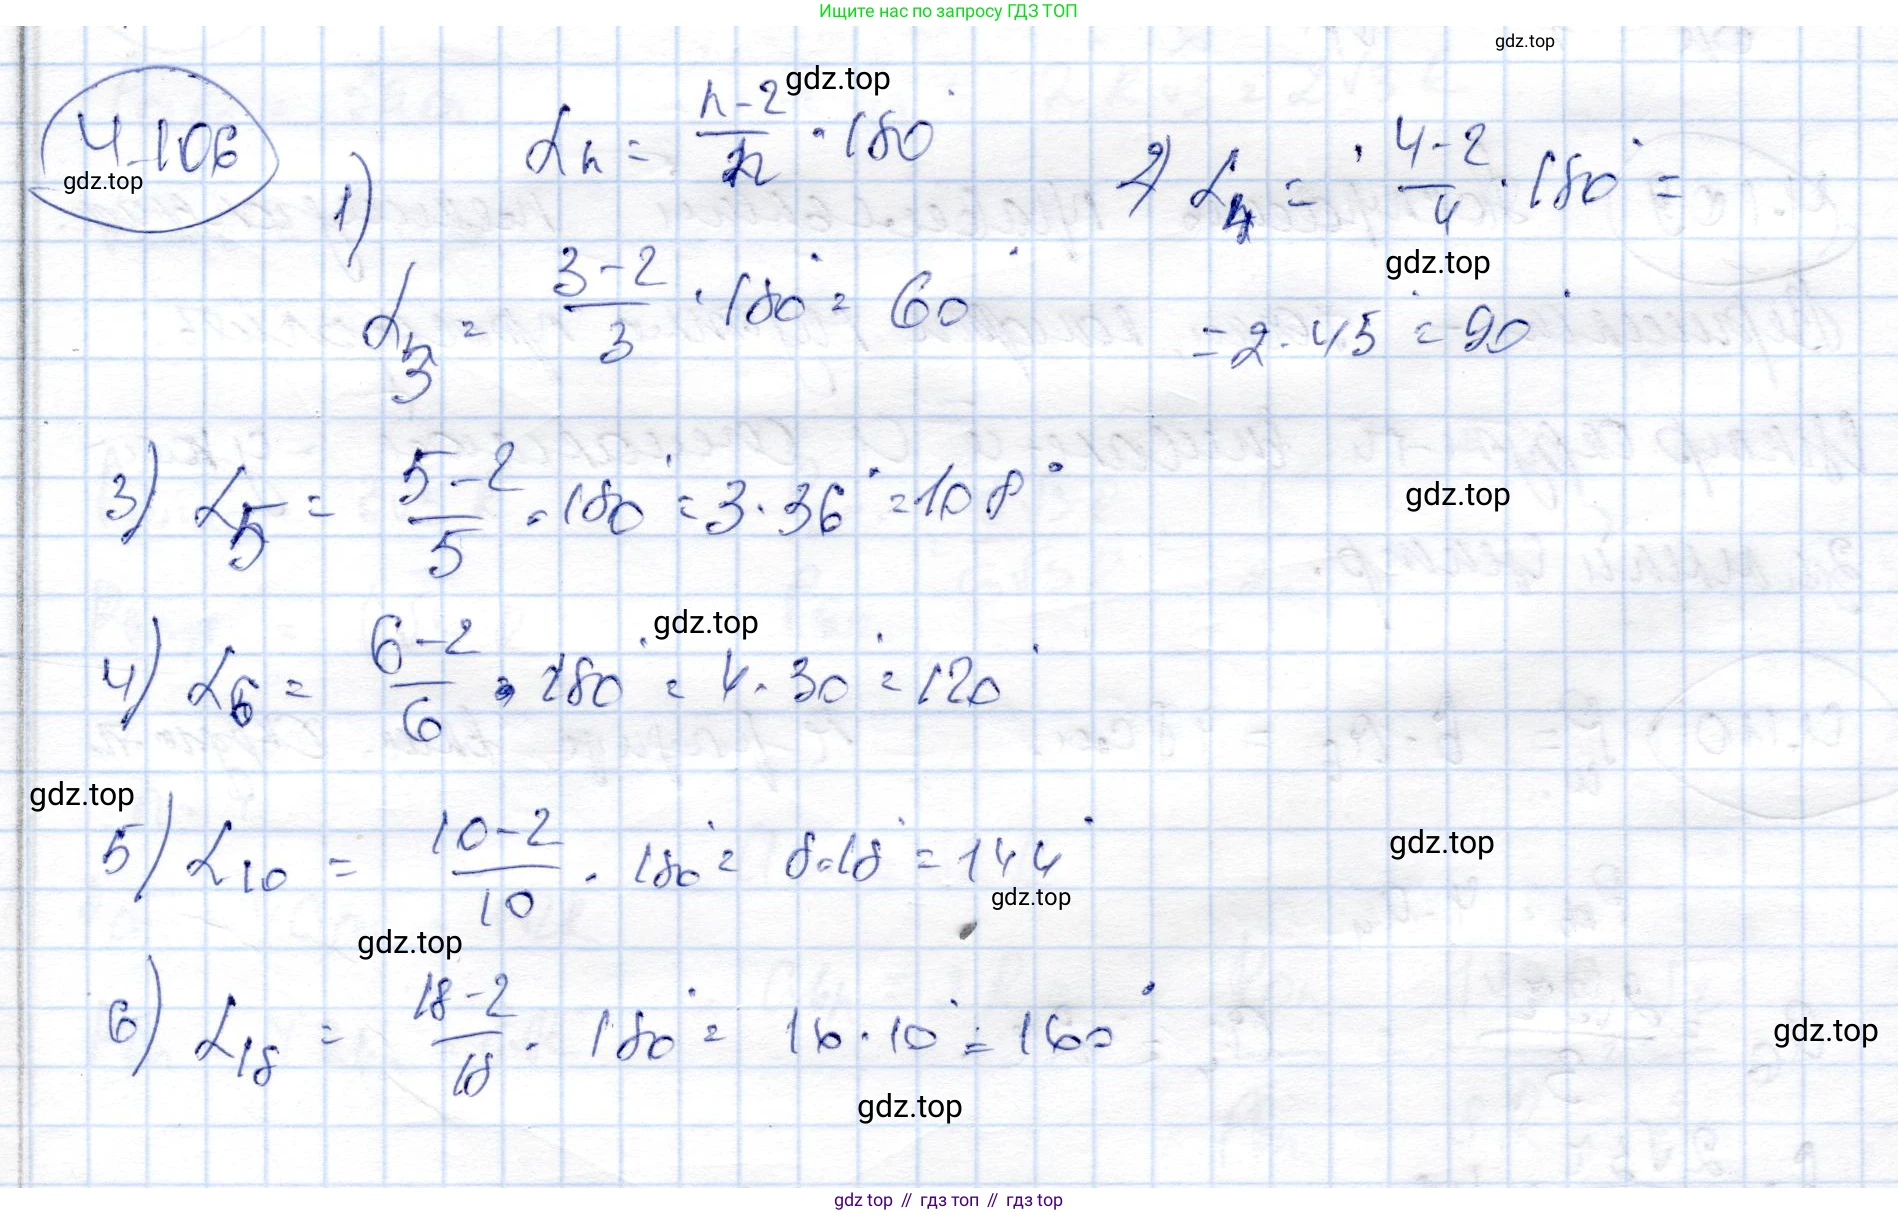 Ищите нас по запросу ГДЗ ТОП
gdz.top
gdz.top
4.106
gdz.top
αn = (n-2)/n · 180°
1) α3 = (3-2)/3 · 180° = 60°
2) α4 = (4-2)/4 · 180° =
gdz.top
= 2 · 45° = 90°
3) α5 = (5-2)/5 · 180° = 3 · 36° = 108°
gdz.top
gdz.top
4) α6 = (6-2)/6 · 180° = 4 · 30° = 120°
gdz.top
5) α10 = (10-2)/10 · 180° = 8·18° = 144°
gdz.top
gdz.top
gdz.top
6) α18 = (18-2)/18 · 180° = 16 · 10° = 160°
gdz.top
gdz.top
gdz top // гдз топ // гдз top